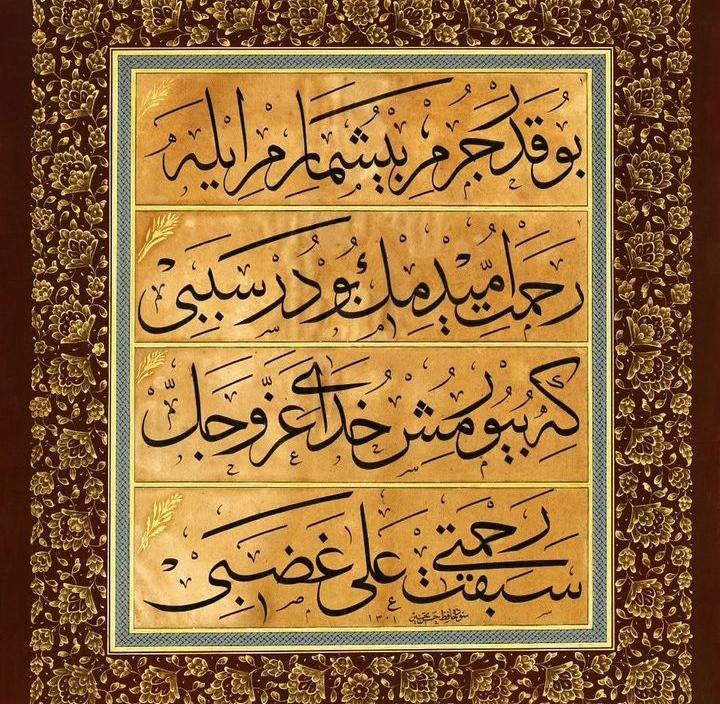 بو قدر جرم بيشمارم ايله
رحمت اميدمك بودر سببى
كه بيورمش خداى عز وجل
سبقت رحمتي على غضبي
١٣٠١